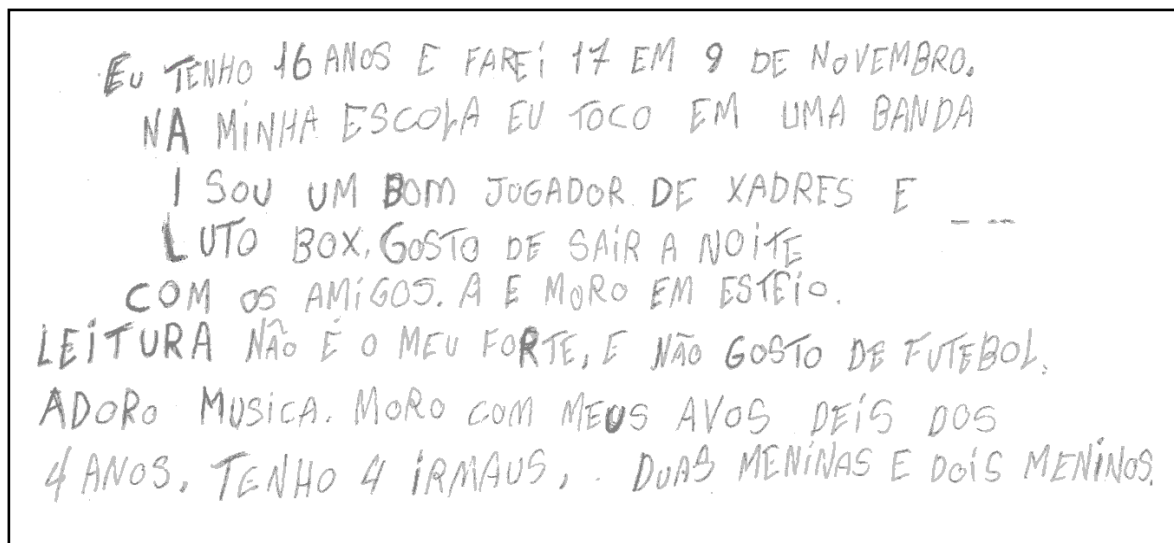 EU TENHO 16 ANOS E FAREI 17 EM 9 DE NOVEMBRO.
NA MINHA ESCOLA EU TOCO EM UMA BANDA
I SOU UM BOM JOGADOR DE XADRES E _ _ _
LUTO BOX. GOSTO DE SAIR A NOITE
COM OS AMIGOS. A E MORO EM ESTEIO.
LEITURA NÃO É O MEU FORTE, E NÃO GOSTO DE FUTEBOL.
ADORO MUSICA. MORO COM MEUS AVOS DEIS DOS
4 ANOS, TENHO 4 IRMAUS, . DUAS MENINAS E DOIS MENINOS.